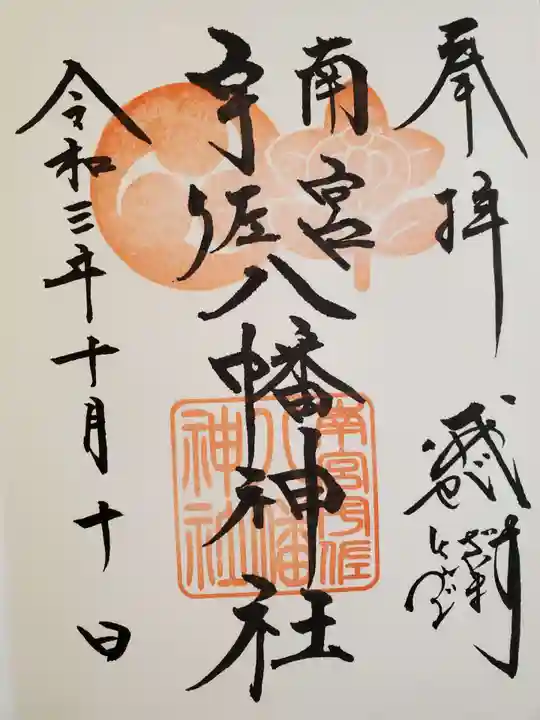 奉拝
南宮
宇佐八幡神社
令和三年十月十日
南宮宇佐
八幡
神社